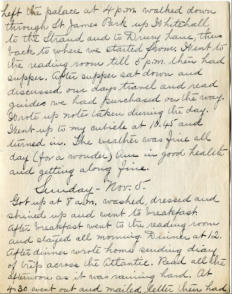 Left the palace at 4 p.m. walked down
through St James Park up Whitehall
to the Strand and to Drury Lane, thus
back to where we started from. Went to
the reading room till 5 p.m. then had
supper. After supper sat down and
discussed our days travel and read
guides we had purchased on the way.
Wrote up notes taken during the day.
Went up to my cubicle at 10.45 and
turned in. The weather was fine all
day (for a wonder) Am in good health
and getting along fine.
Sunday - Nov. 5.
Got up at 8 a.m. washed, dressed and
shined up and went to breakfast
After breakfast went to the reading room
and stayed all morning. Dinner at 12.
After dinner wrote home sending diary
of trip across the Atlantic. Read all the
afternoon as it was raining hard. At
4.30 went out and mailed letter then had